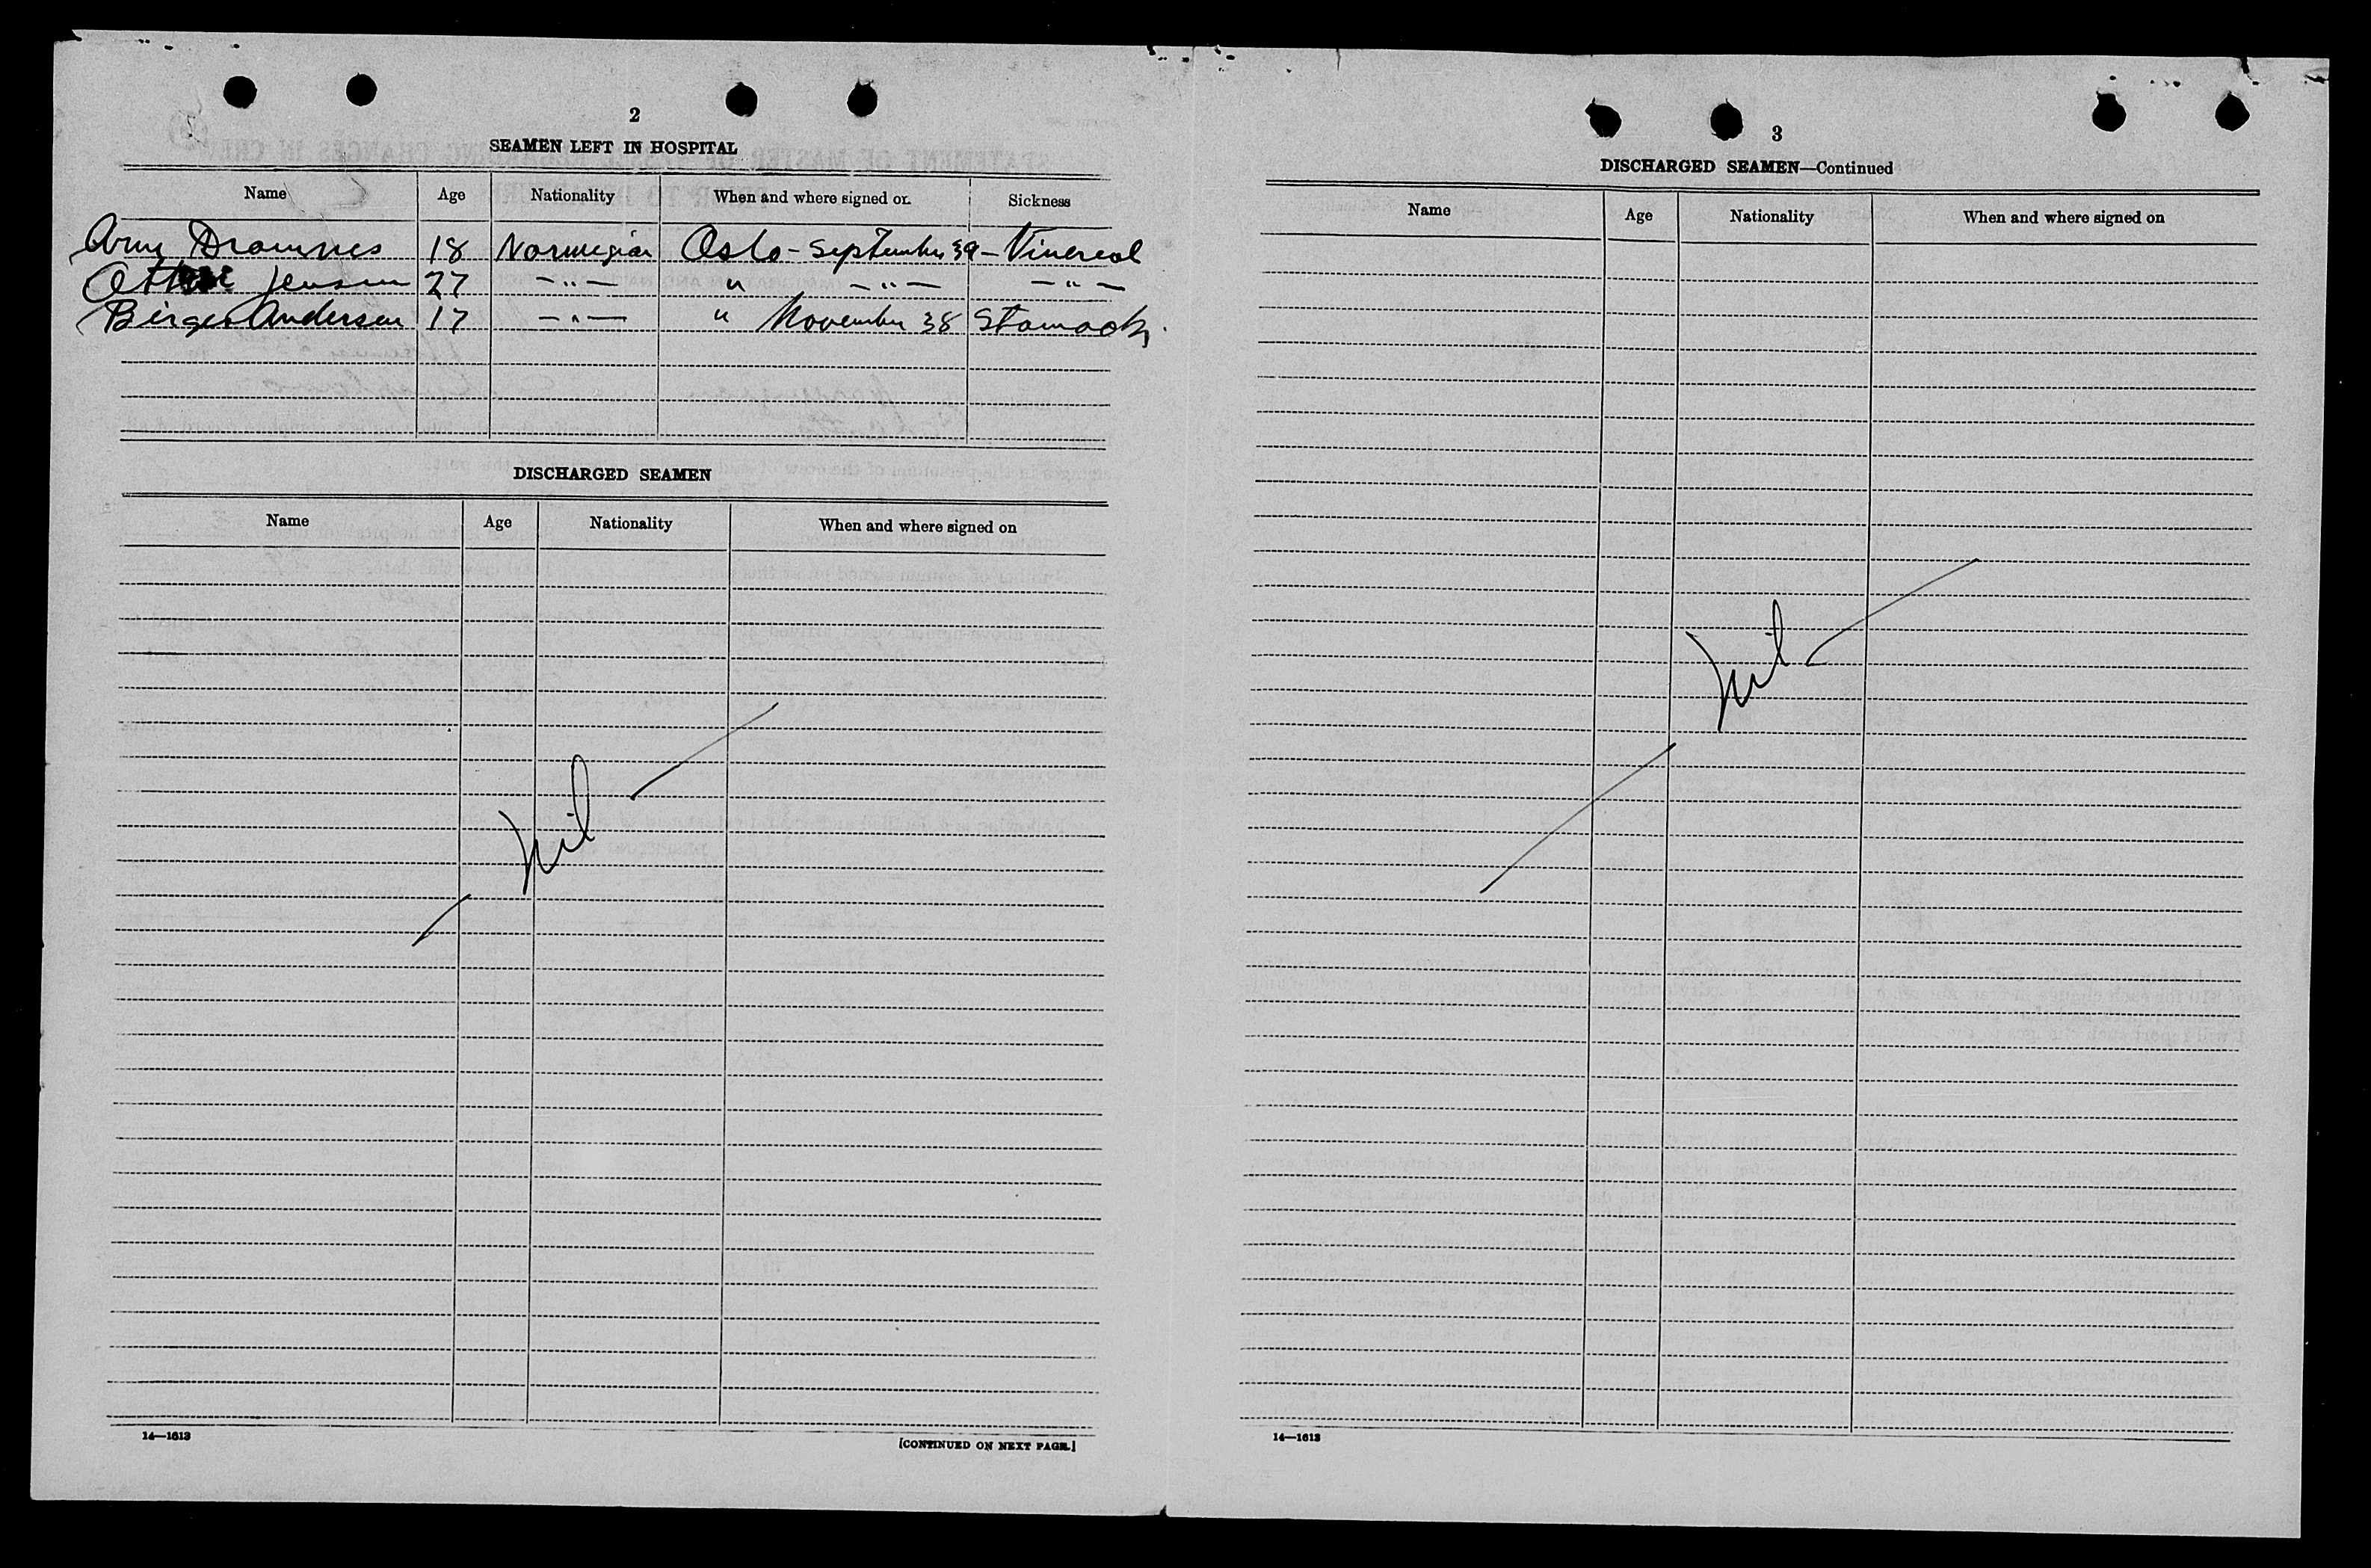 2
SEAMEN LEFT IN HOSPITAL
Name Age Nationality When and where signed on Sickness
18 Norwegian Oslo - September 39 - Vinereal
Jensen 27 - " - " - " - - " -
Birger Andersen 17 - " - " November 38 Stomach
DISCHARGED SEAMEN
Name Age Nationality When and where signed on
Nil
14—1613
[CONTINUED ON NEXT PAGE.]
3
DISCHARGED SEAMEN—Continued
Name Age Nationality When and where signed on
Nil
14—1613